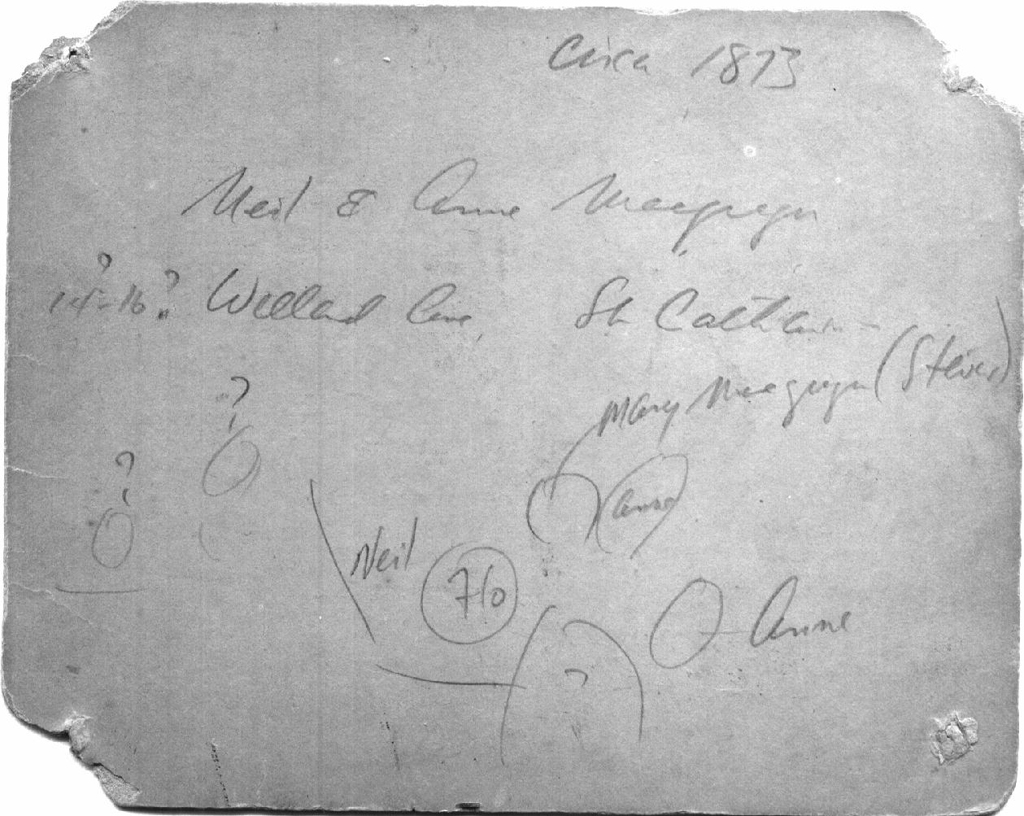 Circa 1873
Neil & Anne Macgregor
? ?
14-16 Welland Ave, St Catharine
Mary Macgregor (Steives)
?
?
Anne
Neil
76
Anne
?